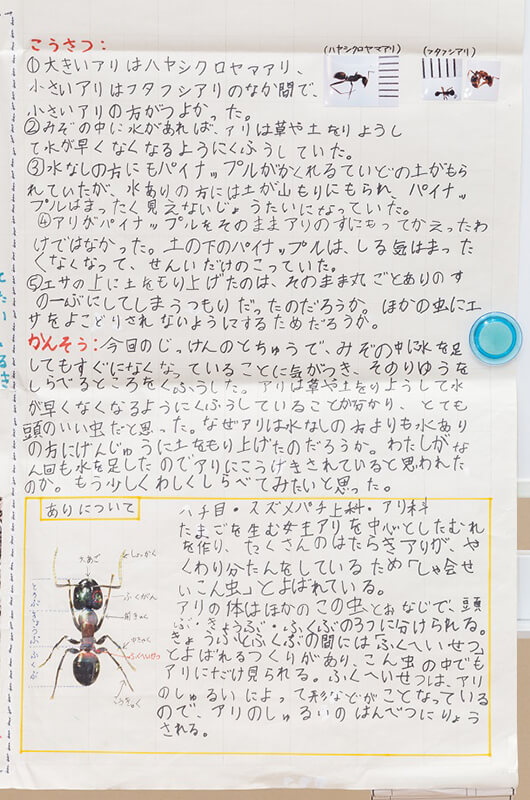 こうさつ：
(ハヤシクロヤマアリ)
(フタフシアリ)
①大きいアリはハヤシクロヤマアリ、
小さいアリはフタフシアリのなか間で、
小さいアリの方がつよかった。
②みぞの中に水があれば、アリは草や土をりようし
て水が早くなくなるようにくふうしていた。
③水なしの方にもパイナップルがかくれるていどの土がもら
れていたが、水ありの方には土が山もりにもられ、パイナッ
プルはまったく見えないじょうたいになっていた。
④アリがパイナップルをそのままアリのすにもってかえったわ
けではなかった。土の下のパイナップルは、しる気はまった
くなくなって、せんいだけのこっていた。
⑤エサの上に土をもり上げたのは、そのまま丸ごとありのす
の一ぶにしてしまうつもりだったのだろうか。ほかの虫にエ
サをよこどりされないようにするためだろうか。
かんそう：今回のじっけんのとちゅうで、みぞの中に水を足
してもすぐになくなっていることに気がつき、そのりゆうを
しらべるところをくふうした。アリは草や土をりようして水
が早くなくなるようにくふうしていることが分かり、とても
頭のいい虫だと思った。なぜアリは水なしの方よりも水あり
の方にげんじゅうに土をもり上げたのだろうか。わたしがな
ん回も水を足したのでアリにこうげきされていると思われた
のか。もう少しくわしくしらべてみたいと思った。
ありについて
ハチ目・スズメバチ上科・アリ科
たまごを生む女王アリを中心としたむれ
を作り、たくさんのはたらきアリが、や
くわり分たんをしているため「しゃ会せ
いこん虫」とよばれている。
アリの体はほかのこの虫とおなじで、頭
ぶ・きょうぶ・ふくぶの3つに分けられる。
きょうぶとふくぶの間には「ふくへいせつ」
とよばれるつくりがあり、こん虫の中でも
アリにだけ見られる。ふくへいせつは、アリ
のしゅるいによって形などがことなっている
ので、アリのしゅるいのはんべつにりよう
される。
大あご
しょっかく
ふくがん
前きゃく
中きゃく
ふくへいせつ
とうぶ
きょうぶ
ふくぶ